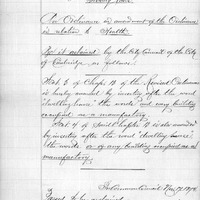 An Ordinance in amendment of the Ordinance
in relation to Health.
Be it ordained by the City Council of the City
of Cambridge, as follows:
Sect. 3 of Chap. 19 of the Revised Ordinances
is hereby amended by inserting after the word
"dwelling house" the words "and any building
occupied as a manufactory.
Sect. 4 of said Chapter 19 is also amended
by inserting after the word "dwelling house"
the words "or of any building occupied as a
manufactory.
In Common Council Nov.
Passed to be ordained